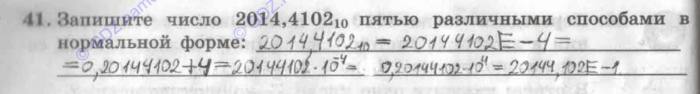 41. Запишите число 2014,4102₁₀ пятью различными способами в
нормальной форме: 2014,4102₁₀ = 20144102E-4 =
=0,20144102+4=20144102·10⁻⁴= 0,20144102·10⁴=20144,102E-1